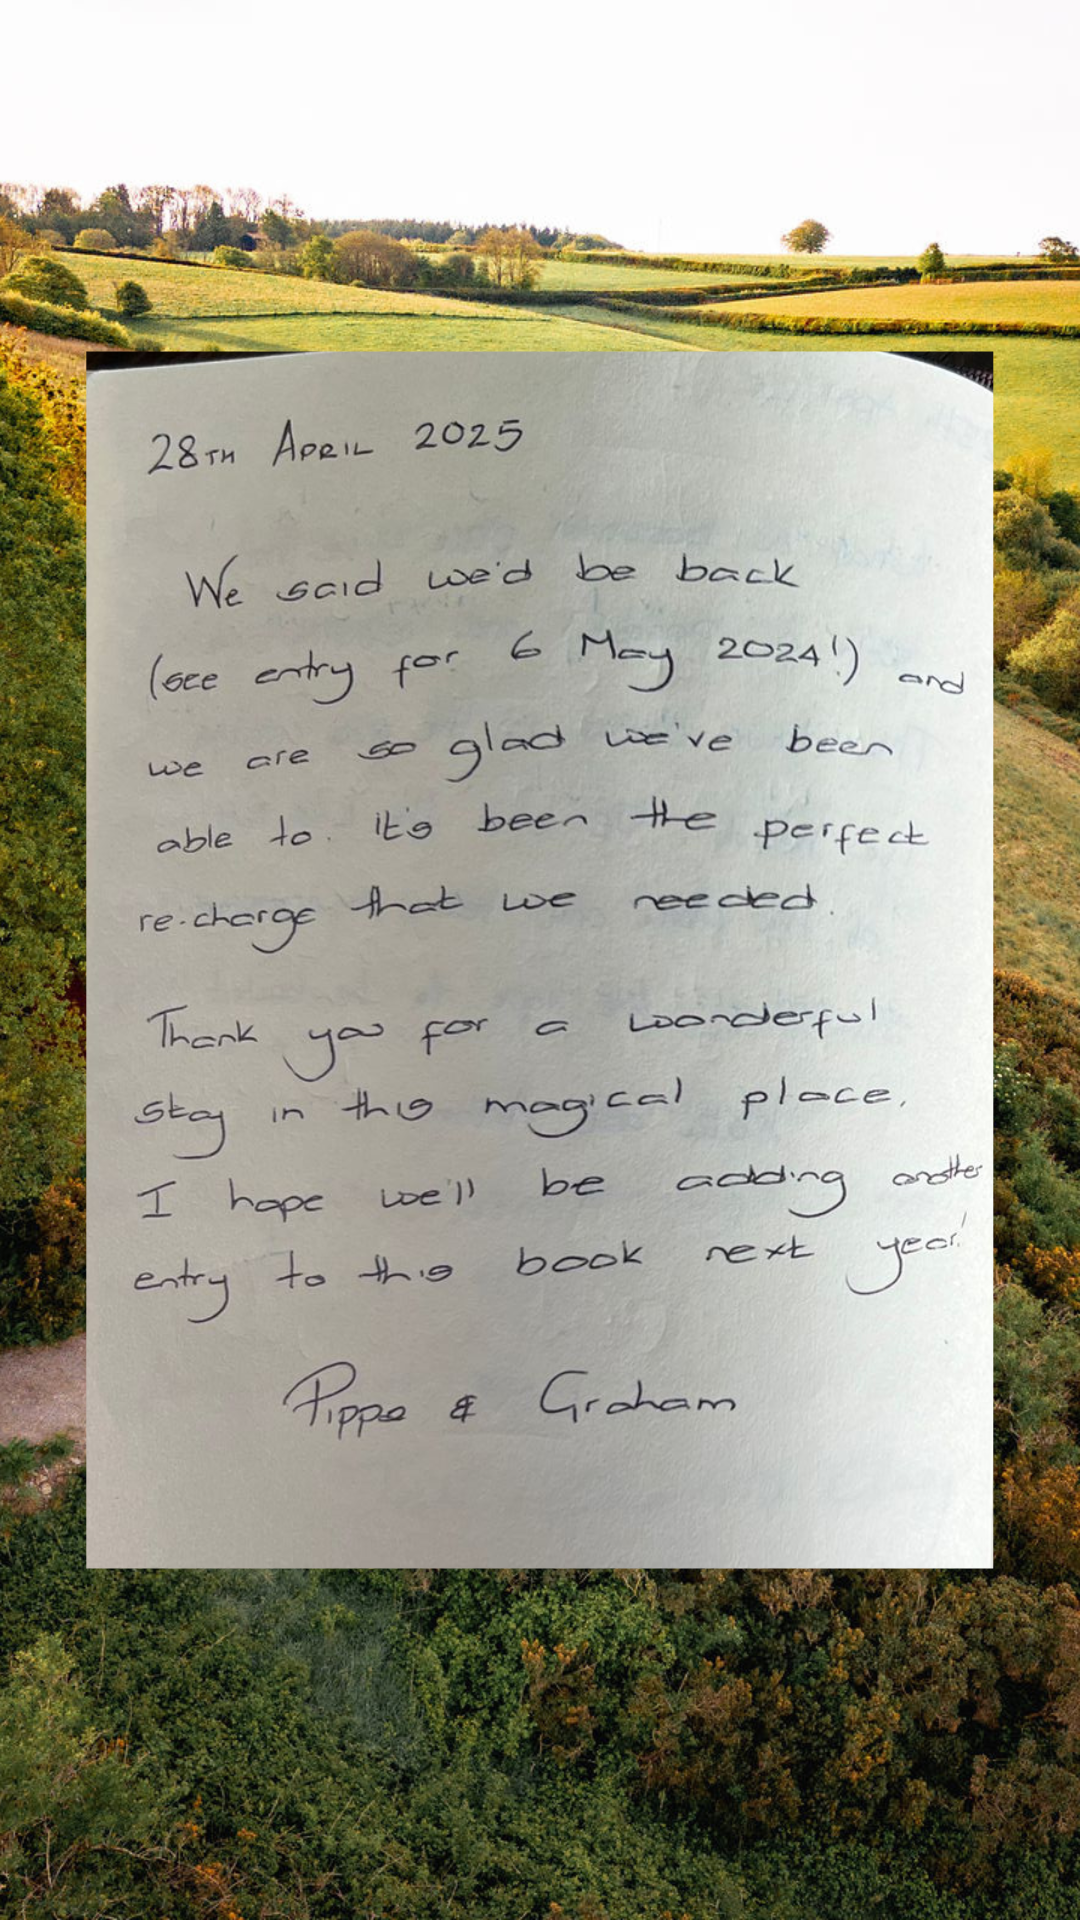 28TH APRIL 2025
We said we'd be back
(see entry for 6 May 2024!) and
we are so glad we've been
able to. It's been the perfect
re-charge that we needed.
Thank you for a wonderful
stay in this magical place.
I hope we'll be adding another
entry to this book next year!
Pippa & Graham